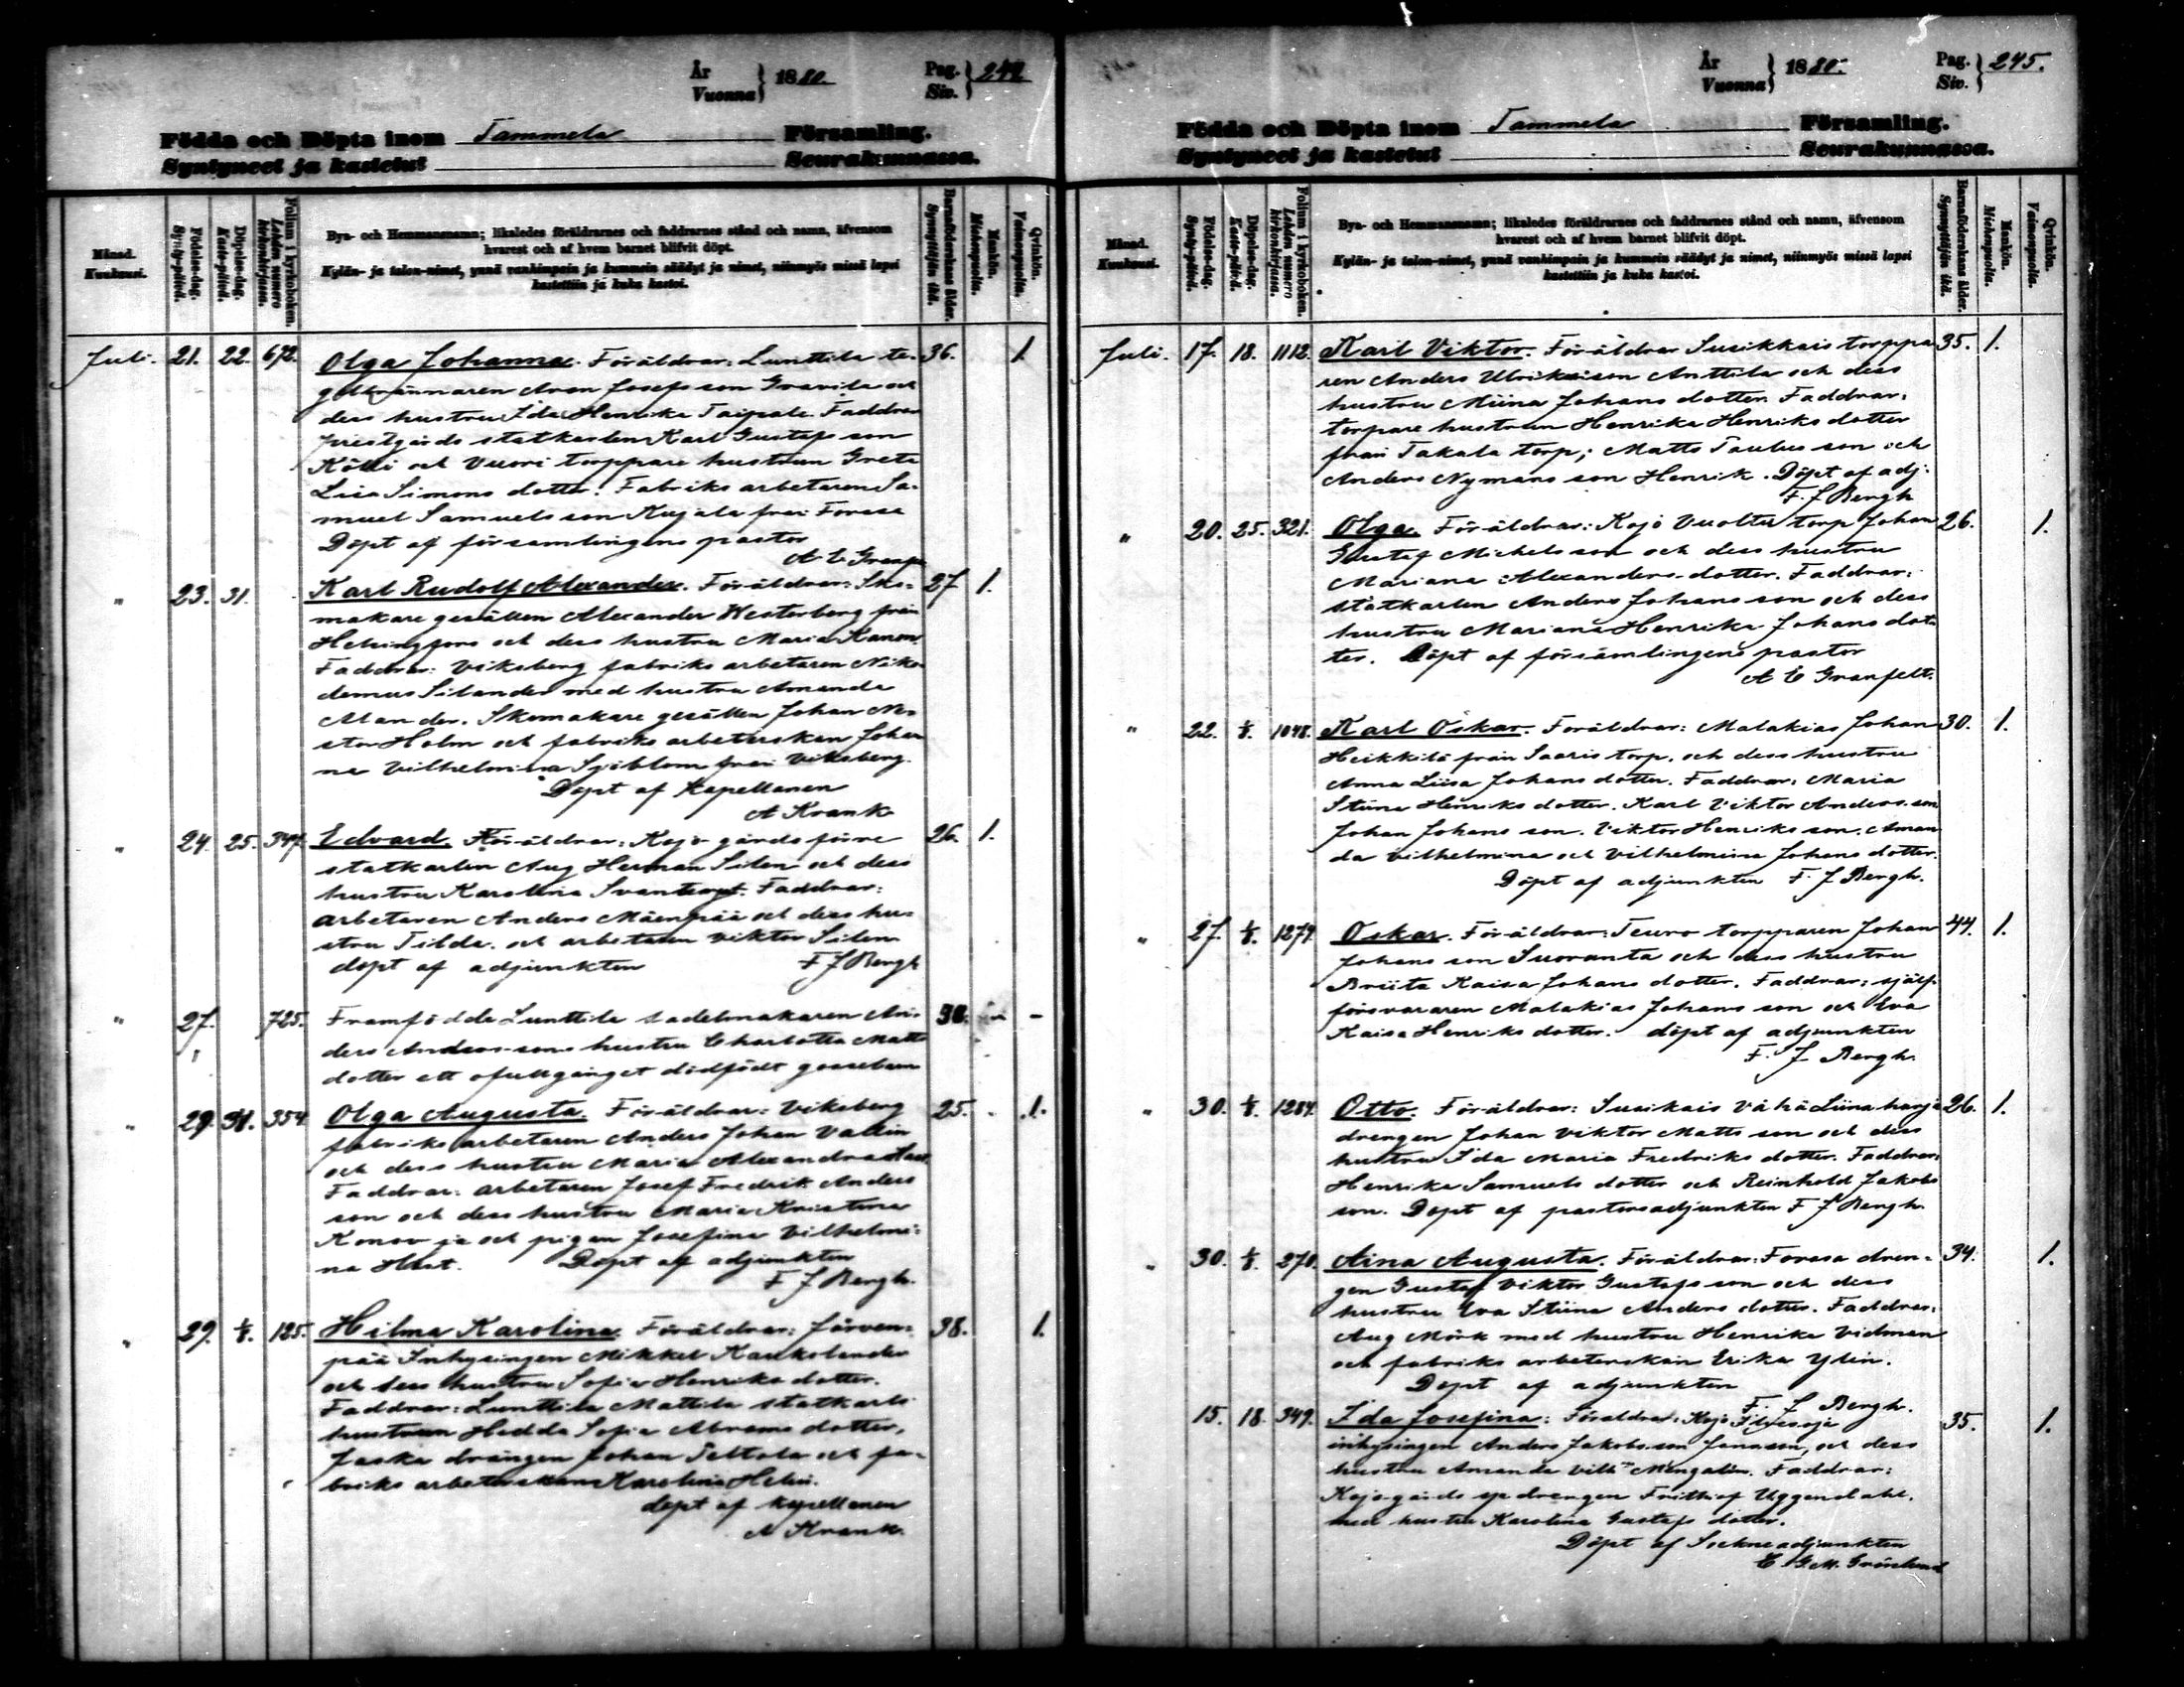 År
Vuonna } 1880.
Pag.
Siv. } 244
Födda och Döpta inom Tammela Församling.
Syntyneet ja kastetut Seurakunnassa.
Månad.
Kuukausi.
Födelse-dag.
Synty-päivä.
Döpelse-dag.
Kaste-päivä.
Folium i kyrkoboken.
Lehden numero kirkonkirjassa.
Bya- och Hemmansnamn; likaledes föräldrarnes och faddrarnes stånd och namn, äfvensom
hvarest och af hvem barnet blifvit döpt.
Kylän- ja talon-nimet, ynnä vanhimpain ja kummein säädyt ja nimet, niinmyös missä lapsi
kastettiin ja kuka kastoi.
Barnaföderskans ålder.
Synnyttäjän ikä.
Mankön.
Miehenpuolta.
Qvinkön.
Vaimonpuolta.
Juli. 21. 22. 672. Olga Johanna. Föräldrar: Lunttila te- 36. 1.
gelbrännaren Aron Josefs son Gravila och
dess hustru Ida Henrika Taipale. Faddrar
prestgårds statkarlen Karl Gustafs son
Kölli och Vuori torppare hustrun Greta
Lisa Simons dotter. Fabriks arbetaren Sa-
muel Samuels son Kujala från Forssa
Döpt af församlingens pastor
A E Granfe
" 23. 31. Karl Rudolf Alexander. Föräldrar: Sko- 27 1.
makare gesällen Alexander Westerberg från
Helsingfors och dess hustru Maria Kanon
Faddrar: Viksberg fabriks arbetaren Niko-
demus Silander med hustru Amanda
Alander. Skomakare gesällen Johan Ne-
stor Holm och fabriks arbeterskan Johan
na Vilhelmina Sjöblom från Viksberg.
Döpt af Kapellanen
A Krank
" 24. 25. 347. Edvard. Föräldrar: Kojo gårds förre 26. 1.
statkarlen Aug Herman Silen och dess
hustru Karolina Faddrar:
arbetaren Anders Mäenpää och dess hu-
stru Tilda. och arbetaren Viktor Silen
döpt af adjunkten F J Bergh
" 27. 725. Framfödde Lunttila sadelmakaren An- 38. - -
ders Anders-sons hustru Charlotta Matts
dotter ett ofullgånget dödfödt gossebarn
" 29. 31. 354 Olga Augusta. Föräldrar: Viksberg 25. 1.
fabriks arbetaren Anders Johan Vallin
och dess hustru Maria Alexandra
Faddrar: arbetaren Josef Fredrik Anders
son och dess hustru Maria Kristina
Konov ja och pigan Josefina Vilhelmi-
na Döpt af adjunkten
F J Bergh.
" 29. 1/8. 125. Hilma Karolina. Föräldrar: Järven- 38. 1.
pää Inhysingen Mikkel Kaukolander
och dess hustru Sofia Henriks dotter.
Faddrar: Lunttila Mattila statkarls
hustrun Hedda Sofia Abrams dotter,
Jaska drängen Johan Peltola och fa-
briks arbeterskan Karolina Helin.
döpt af kapellanen
A Krank.
År
Vuonna } 1880.
Pag.
Siv. } 245.
Födda och Döpta inom Tammela Församling.
Syntyneet ja kastetut Seurakunnassa.
Månad.
Kuukausi.
Födelse-dag.
Synty-päivä.
Döpelse-dag.
Kaste-päivä.
Folium i kyrkoboken.
Lehden numero kirkonkirjassa.
Bya- och Hemmansnamn; likaledes föräldrarnes och faddrarnes stånd och namn, äfvensom
hvarest och af hvem barnet blifvit döpt.
Kylän- ja talon-nimet, ynnä vanhimpain ja kummein säädyt ja nimet, niinmyös missä lapsi
kastettiin ja kuka kastoi.
Barnaföderskans ålder.
Synnyttäjän ikä.
Mankön.
Miehenpuolta.
Qvinkön.
Vaimonpuolta.
Juli. 17. 18. 1112. Karl Viktor. Föräldrar Susikkais torppa 35. 1.
ren Anders Ulriksson Anttila och dess
hustru Miina Johans dotter. Faddrar:
torpare hustrun Henrika Henriks dotter
från Takala torp; Matts Paulus son och
Anders Nymans son Henrik. Döpt af adj.
F. J Bergh
" 20. 25. 321. Olga. Föräldrar: Kojo Vuoltu torp Johan 26. 1.
Gustaf Michelsson och dess hustru
Mariana Alexanders-dotter. Faddrar:
statkarlen Anders Johansson och dess
hustru Mariana Henrika Johans dot-
ter. Döpt af församlingens pastor
A E Granfelt.
" 22. 1/8. 1048. Karl Oskar. Föräldrar: Malakias Johan 30. 1.
Heikkilä från Saaris torp, och dess hustru
Anna Liisa Johans dotter. Faddrar: Maria
Stiina Henriks dotter. Karl Viktor Anders-son
Johan Johans son. Viktor Henriks son. Aman
da Vilhelmina och Vilhelmina Johans dotter.
Döpt af adjunkten F. J Bergh.
" 27. 1/8. 1279. Oskar. Föräldrar: Teuro torpparen Johan 44. 1.
Johans son Suoranta och dess hustru
Briita Kaisa Johans dotter. Faddrar: själf-
försvararen Malakias Johans son och Eva
Kaisa Henriks dotter. döpt af adjunkten
F. J Bergh.
" 30. 1/8. 1284. Otto. Föräldrar: Susikais Vähä Liinaharja 26. 1.
drengen Johan Viktor Matts son och dess
hustru Ida Maria Fredriks dotter. Faddrar:
Henrika Samuels dotter och Reinhold Jakobs
son. Döpt af pastorsadjunkten F J Bergh.
" 30. 1/8. 270. Aina Augusta. Föräldrar: Forssa dren- 34. 1.
gen Gustaf Viktor Gustafs son och dess
hustru Eva Stiina Anders dotter. Faddrar:
Aug Mörk med hustru Henrika Vidman
och fabriks arbeterskan Erika Ylin.
Döpt af adjunkten
F. J Bergh.
15. 18. 349. Ida Josefina: Föräldrar: Kojo 35. 1.
inhysingen Anders Jakobs-son Jansson, och dess
hustru Amanda Vilh Mengalin. Faddrar:
Kojo-gårds drengen Frithiof Uggendahl.
med hustru Karolina Gustafs dotter.
Döpt af Sockneadjunkten
E G.M. Grönlund